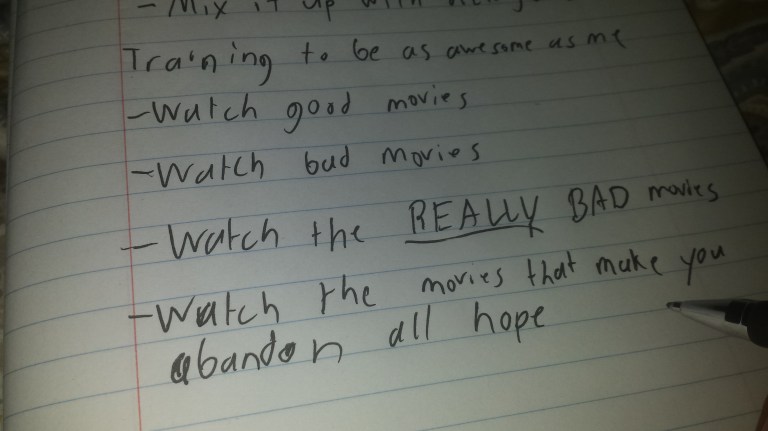 - Mix it up with
Training to be as awesome as me
- Watch good movies
- Watch bad movies
- Watch the REALLY BAD movies
- Watch the movies that make you
abandon all hope